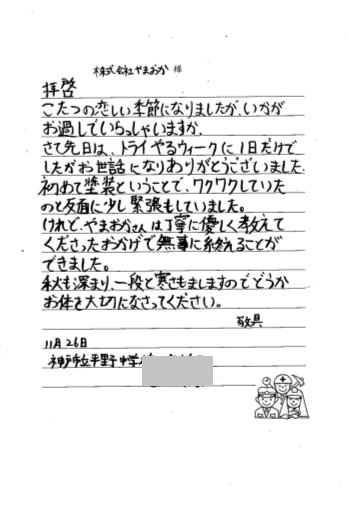 株式会社やまおか 様
拝啓
こたつの恋しい季節になりましたが、いかが
お過していらっしゃいますか。
さて先日は、トライやるウィークに1日だけで
したがお世話になりありがとうございました。
初めて塗装ということで、ワクワクしていた
のと反面に少し緊張もしていました。
けれど、やまおかさんは丁寧に優しく教えて
くださったおかげで無事に終えることが
できました。
秋も深まり、一段と寒さもましますのでどうか
お体を大切になさってください。
敬具
11月26日
神戸市立平野中学